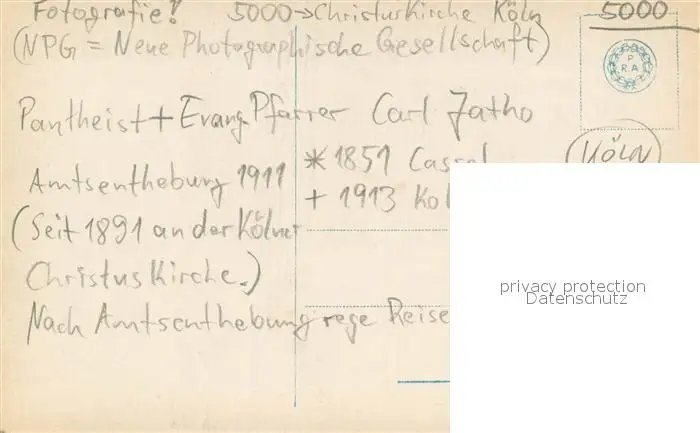 Fotografie! 5000→Christuskirche Köln 5000
(NPG = Neue Photographische Gesellschaft)
P
RA
Pantheist + Evang Pfarrer Carl Jatho
(KÖLN)
Amtsenthebung 1911
* 1851 Cassel
+ 1913
(Seit 1891 an der Kölner
Christuskirche.)
Nach Amtsenthebung rege Reise
privacy protection
Datenschutz